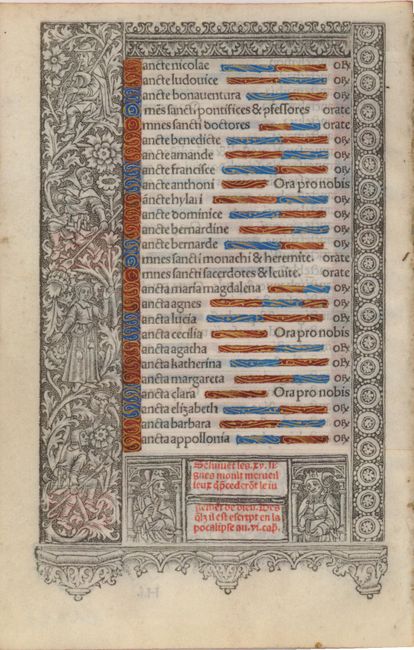 ancte nicolae or̃
ancte ludouice or̃
ancte bonauentura or̃
mẽs sancti pontifices & pfessores orate
mnes sancti doctores orate
ancte benedicte or̃
ancte amande or̃
ancte francisce or̃
ancte anthoni Ora pro nobis
ãncte hylari or̃
ancte dominice or̃
ancte bernardine or̃
ancte bernarde or̃
mnes sancti monachi & heremite. orate
mnes sancti sacerdotes & leuite. orate
ancta maria magdalena or̃
ancta agnes or̃
ancta lucia or̃
ancta cecilia Ora pro nobis
ancta agatha or̃
ancta katherina or̃
ancta margareta or̃
ancta clara Ora pro nobis
ancta elizabeth or̃
ancta barbara or̃
ancta appollonia or̃
Sensuiuẽt les .xv. si
gnes moult merueil
leux q̃ p̃cederõt le iu
gemẽt de dieu. Des
q̃lz il est escript en la
pocalipse au .vi. cap̃.